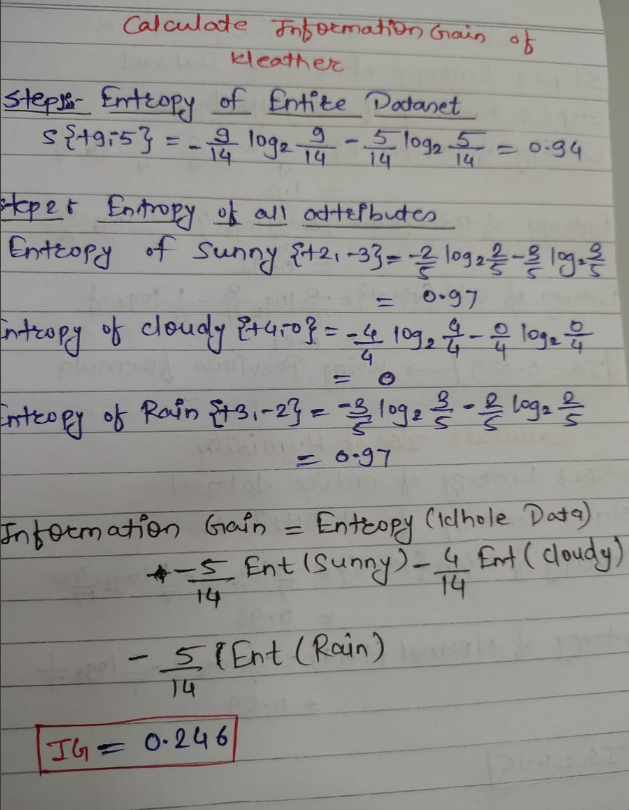 Calculate Information Gain of
Weather
Step1:- Entropy of Entire Dataset
S{+9,-5} = -9/14 log2 9/14 - 5/14 log2 5/14 = 0.94
Step 2: Entropy of all attributes
Entropy of Sunny {+2,-3} = -2/5 log2 2/5 - 3/5 log2 3/5
= 0.97
Entropy of cloudy {+4,-0} = -4/4 log2 4/4 - 0/4 log2 0/4
= 0
Entropy of Rain {+3,-2} = -3/5 log2 3/5 - 2/5 log2 2/5
= 0.97
Information Gain = Entropy (Whole Data)
- 5/14 Ent (Sunny) - 4/14 Ent (cloudy)
- 5/14 Ent (Rain)
IG = 0.246